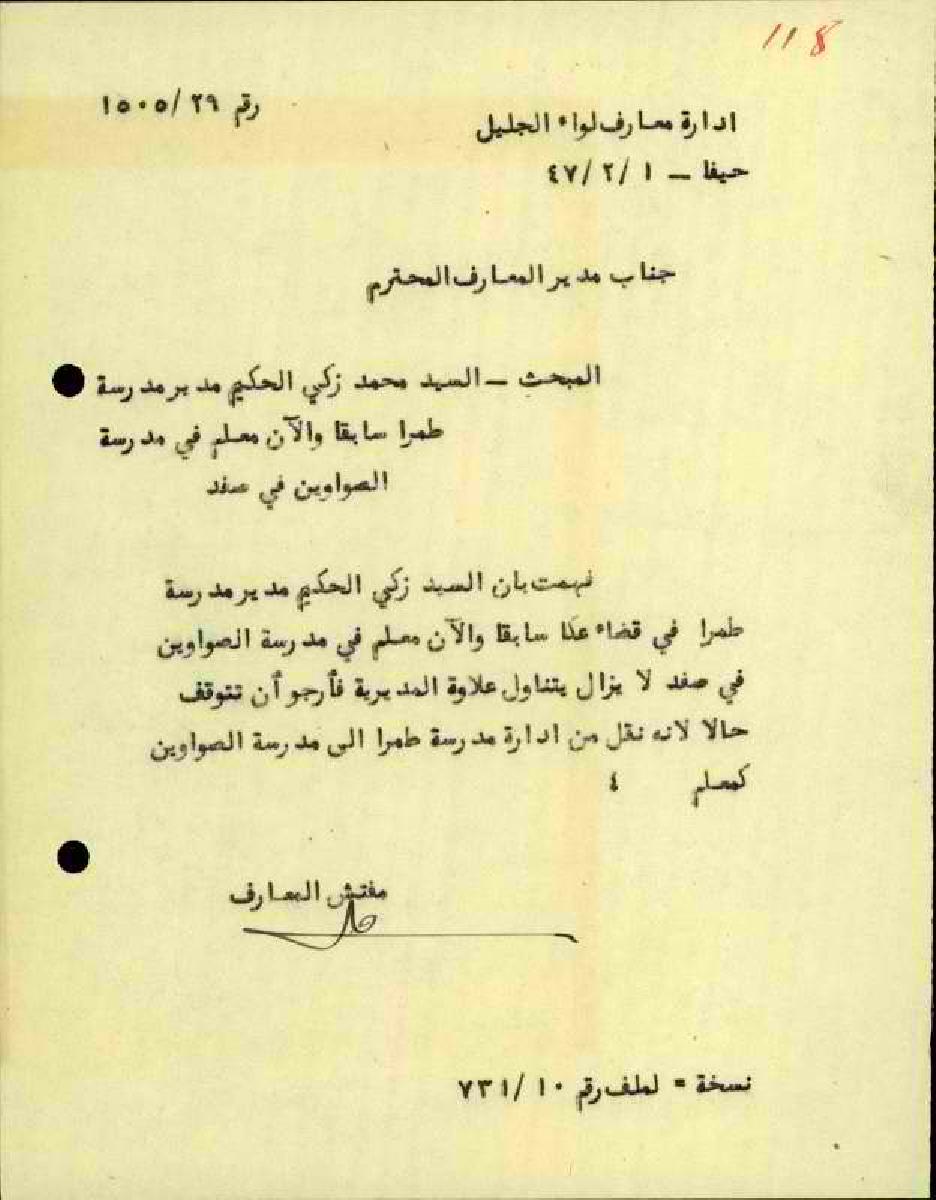 118
رقم ٢٩/ ١٥٠٥
ادارة معارف لواء الجليل
حيفا – ١ /٢ /٤٧
جناب مدير المعارف المحترم
المبحث – السيد محمد زكي الحكيم مدير مدرسة
طمرا سابقا والآن معلم في مدرسة
الصواوين في صفد
فهمت بان السيد زكي الحكيم مدير مدرسة
طمرا في قضاء عكا سابقا والآن معلم في مدرسة الصواوين
في صفد لا يزال يتناول علاوة المديرية فأرجو أن تتوقف
حالا لانه نقل من ادارة مدرسة طمرا الى مدرسة الصواوين
كمعلم ٤
مفتش المعارف
نسخة = لملف رقم ١٠ /٧٣١